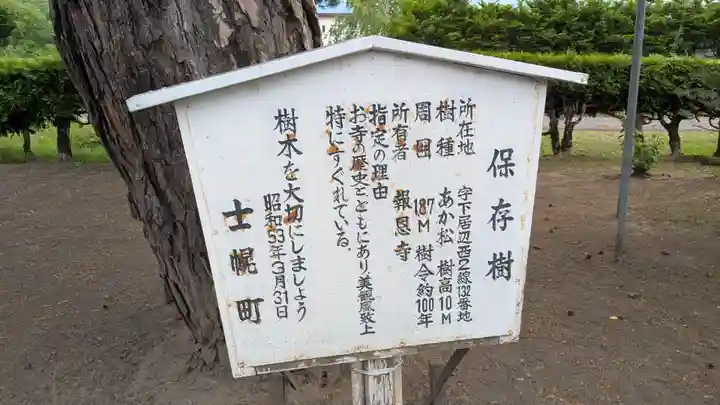 保存樹
所在地 字下居辺西2線132番地
樹種 あか松 樹高10M
周囲 1.87M 樹令約100年
所有者 報恩寺
指定の理由
お寺の歴史とともにあり美観風致上
特にすぐれている。
樹木を大切にしましょう
昭和53年3月31日
士幌町